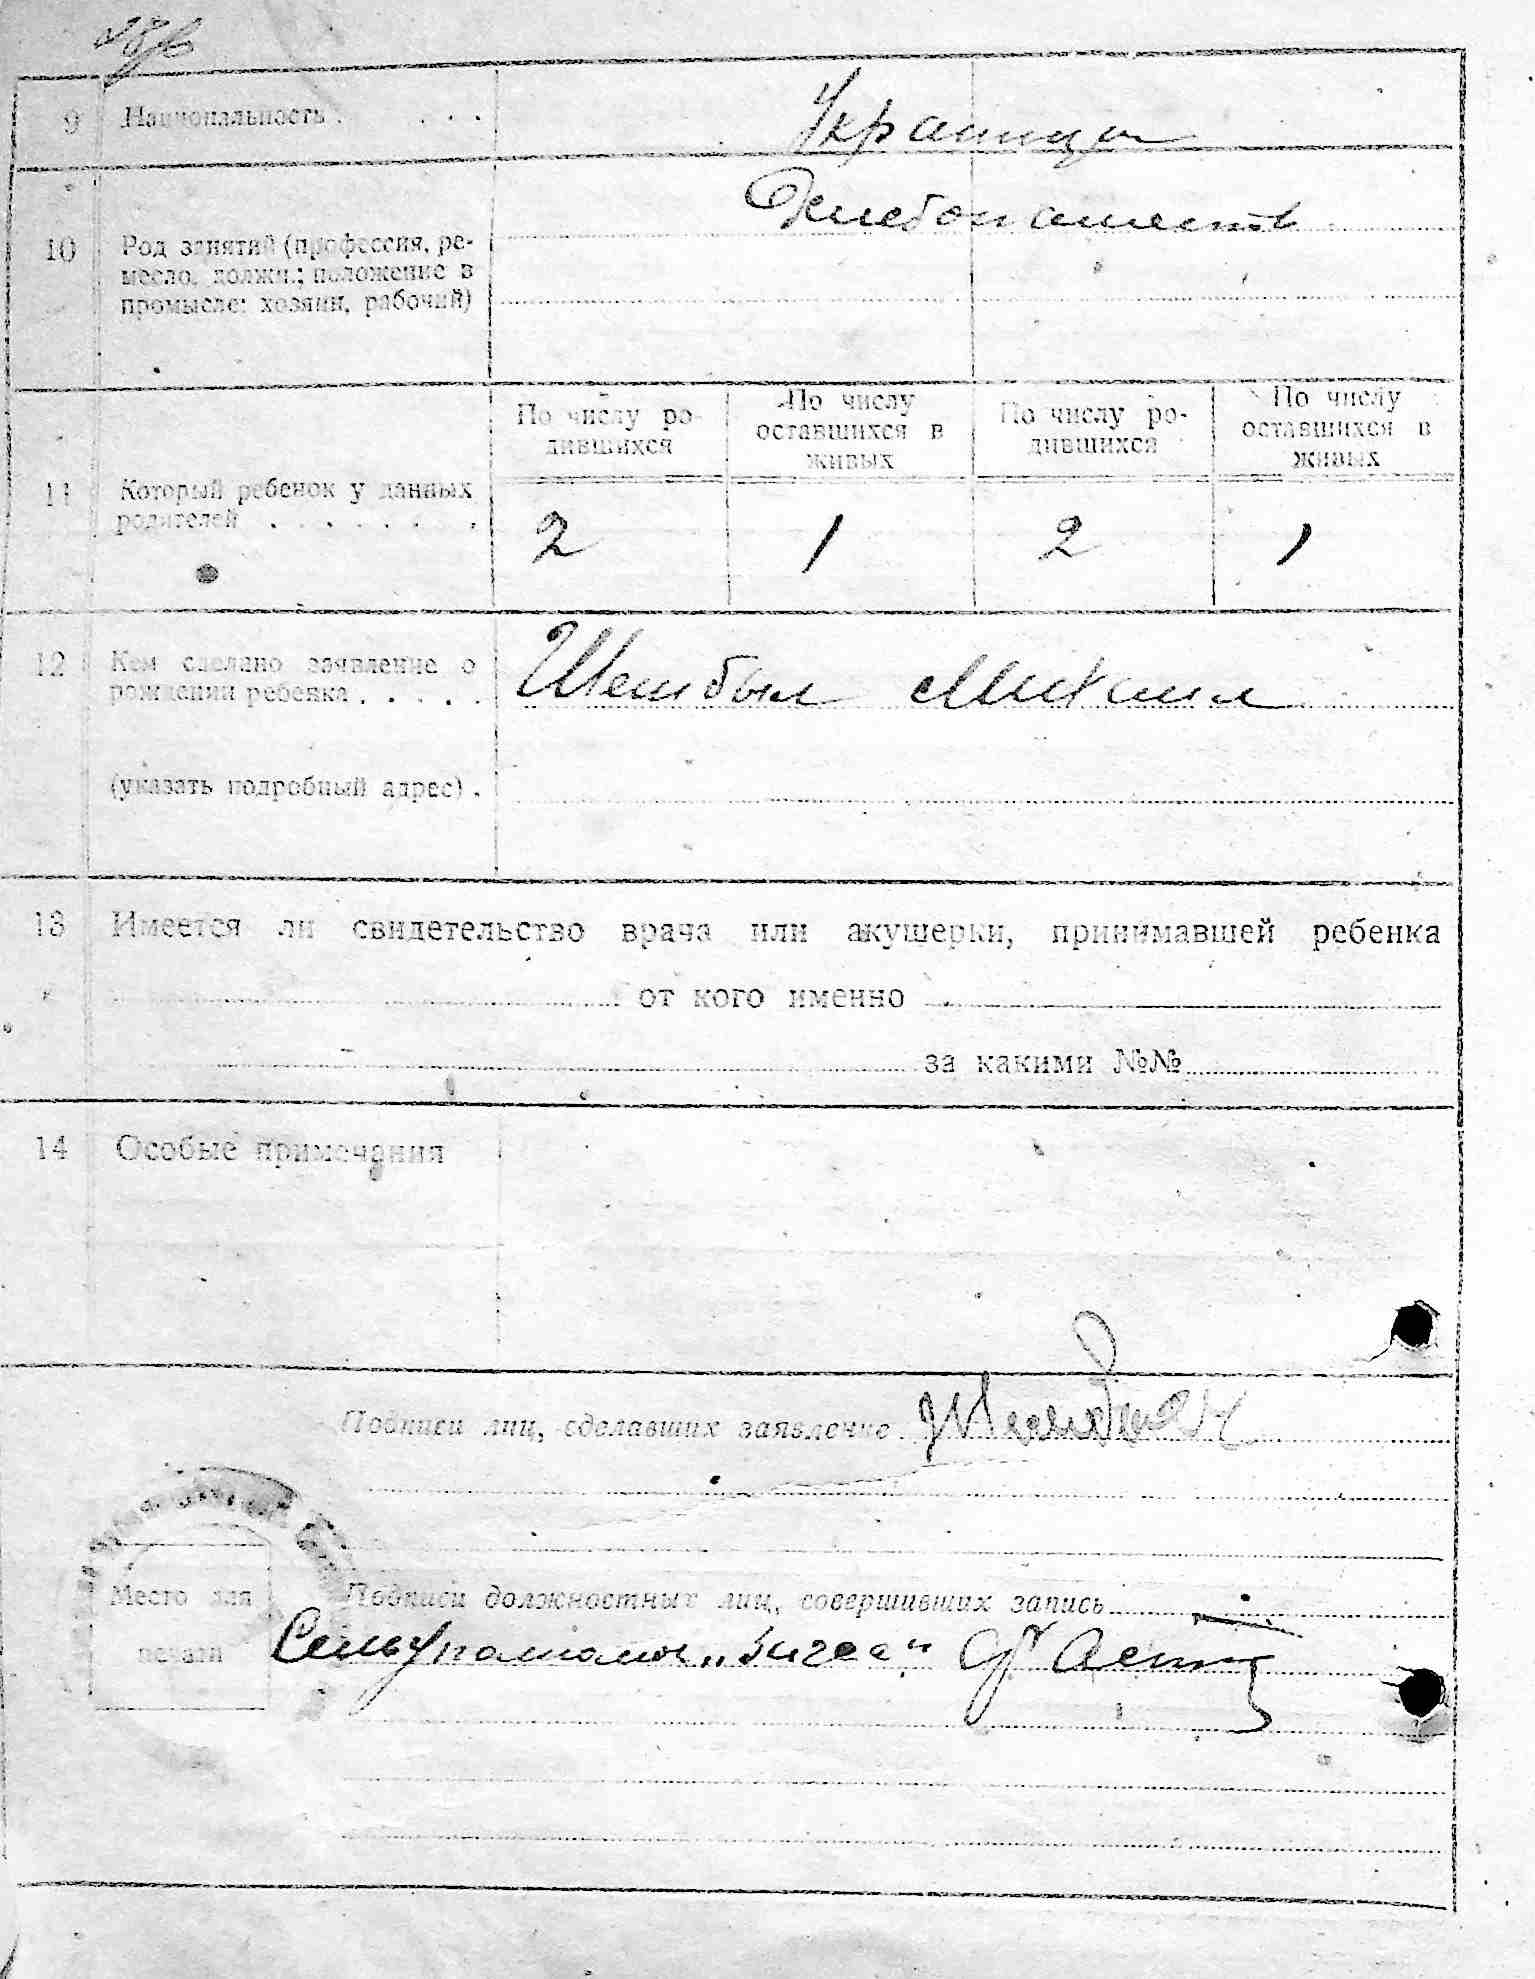 9 Национальность . . . . Украинцы
10 Род занятий (профессия, ре-
месло, должн.; положение в
промысле: хозяин, рабочий)
Хлебопашеств
По числу ро-
дившихся
По числу
оставшихся в
живых
По числу ро-
дившихся
По числу
оставшихся в
живых
11 Который ребенок у данных
родителей . . . . . . . .
2 1 2 1
12 Кем сделано заявление о
рождении ребенка . . . . .
Михаил
(указать подробный адрес) .
13 Имеется ли свидетельство врача или акушерки, принимавшей ребенка
от кого именно
за какими №№
14 Особые примечания
Подписи лиц, сделавших заявление
Место для
печати
Подписи должностных лиц, совершивших запись